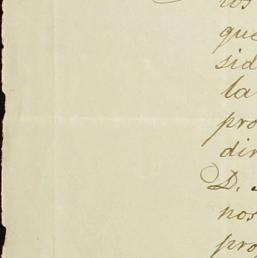 ros
que
sid
la
pro
dir
D.
nos
pro